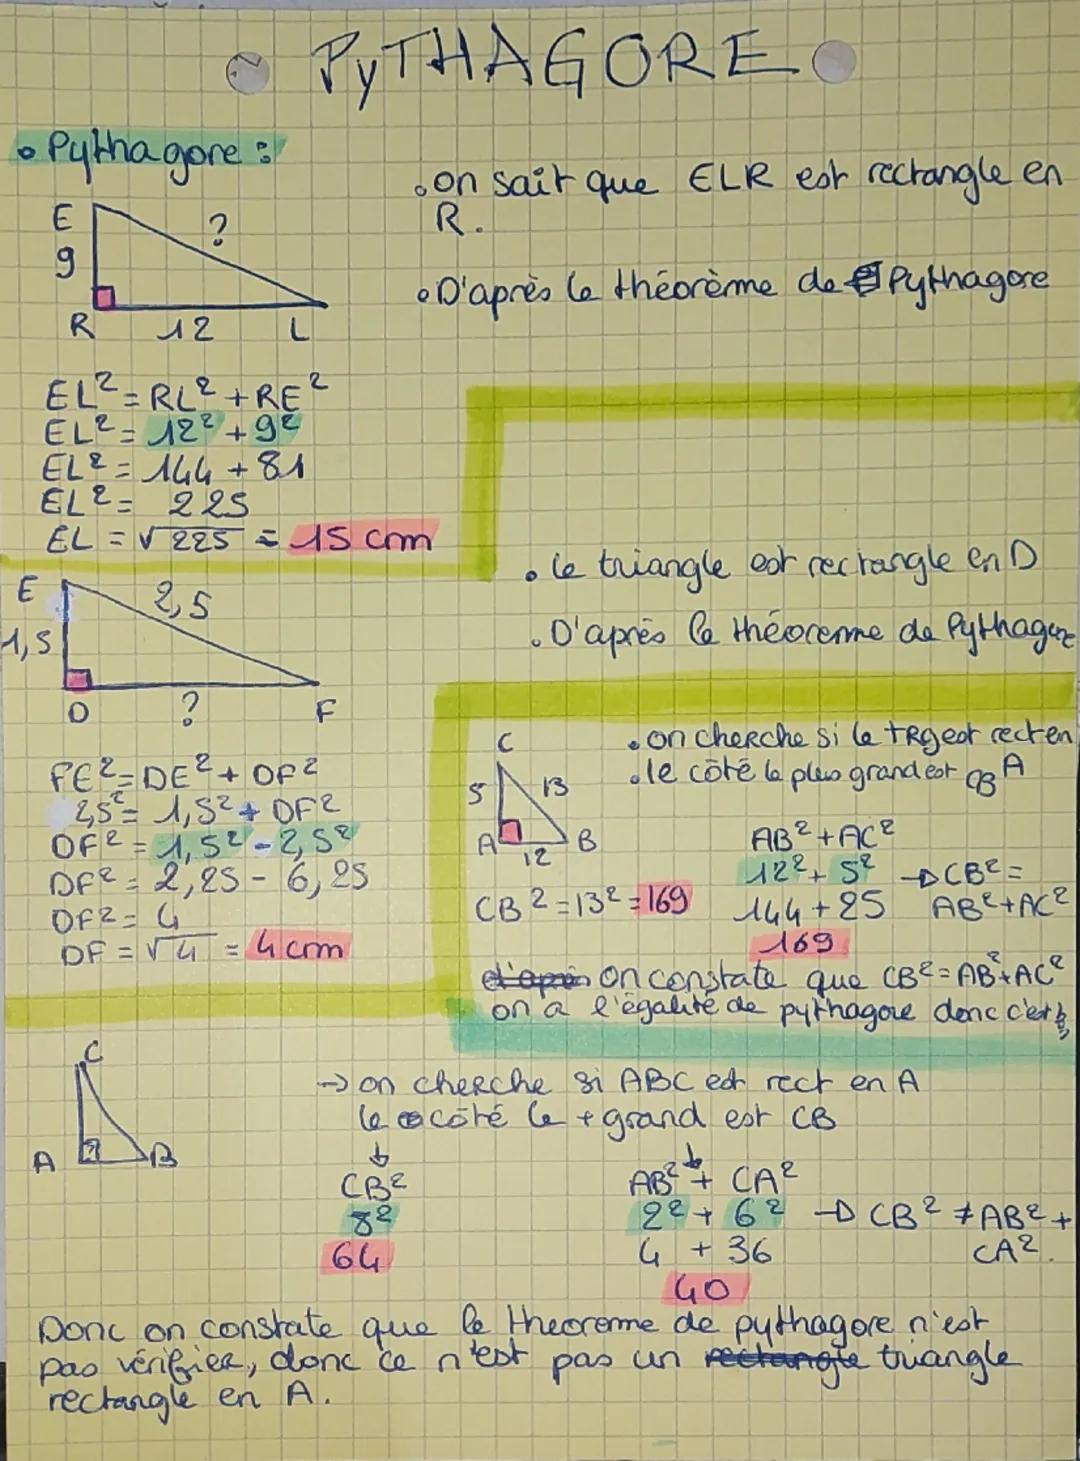 PYTHAGORE
• Pythagore :
E
9
?
R 12 L
• on sait que ELR est rectangle en
R.
• D'après le théorème de Pythagore
EL² = RL² + RE²
EL² = 12² + 9²
EL² = 144 + 81
EL² = 225
EL = √225 = 15 cm
E
2,5
1,5
D ? F
• le triangle est rectangle en D
• D'après le théoreme de Pythagore
FE² = DE² + DF²
2,5² = 1,5² + DF²
DF² = 1,5² - 2,5²
DF² = 2,25 - 6,25
DF² = 4
DF = √4 = 4 cm
C
5 13
A 12 B
• on cherche si le trgest rect en
A
• le côté le plus grand est CB
CB² = 13² = 169
AB² + AC²
12² + 5² → CB² =
144 + 25 AB² + AC²
169
d'après on constate que CB² = AB² + AC²
on a l'égalité de pythagore donc c'est
C
A ? B
→ on cherche si ABC est rect en A
le côté le + grand est CB
↓ ↓
CB² AB² + CA²
8² 2² + 6² → CB² ≠ AB² +
64 4 + 36 CA².
40
Donc on constate que le theoreme de pythagore n'est
pas vérifier, donc ce n'est pas un rectangle triangle
rectangle en A.